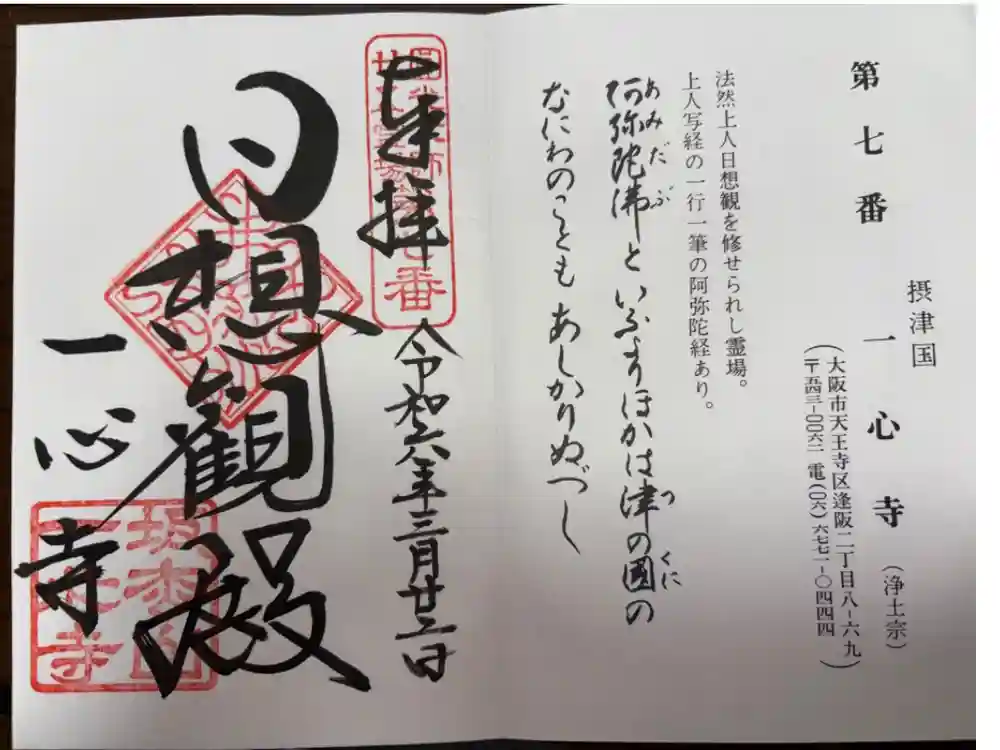 第七番
摂津国
一心寺(浄土宗)
(大阪市天王寺区逢阪二丁目八-六九
〒五四三-〇〇六二 電(〇六)六七七一-〇四四四)
法然上人日想観を修せられし霊場。
上人写経の一行一筆の阿弥陀経あり。
阿弥陀佛といふよりほかは津の國の
あみだぶ
つ
くに
なにわのことも あしかりぬべし
奉拝
令和六年三月廿二日
圓光大師
廿五霊場第七番
日想観殿
一心寺
坂松山
一心寺